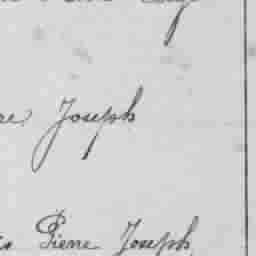 re Joseph
is Pierre Joseph